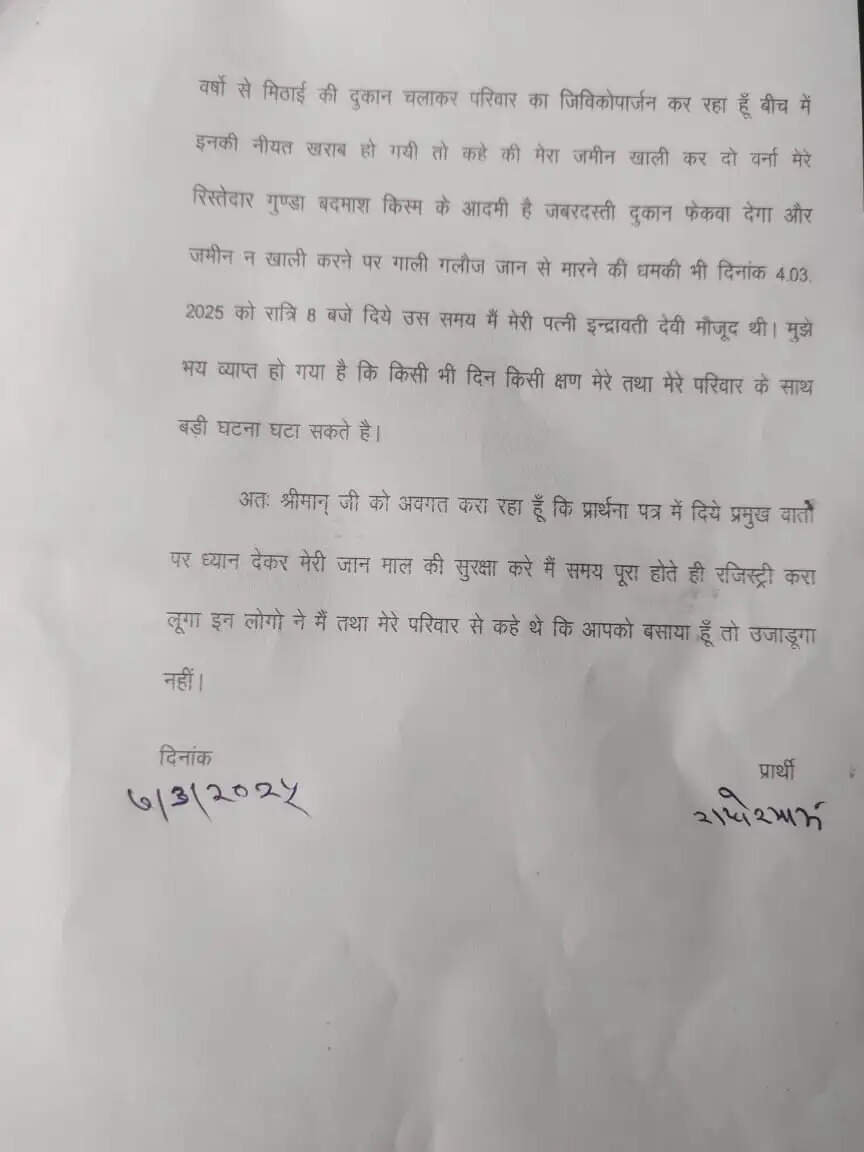 वर्षो से मिठाई की दुकान चलाकर परिवार का जिविकोपार्जन कर रहा हूँ बीच में
इनकी नीयत खराब हो गयी तो कहे की मेरा जमीन खाली कर दो वर्ना मेरे
रिस्तेदार गुण्डा बदमाश किस्म के आदमी है जबरदस्ती दुकान फेकवा देगा और
जमीन न खाली करने पर गाली गलौज जान से मारने की धमकी भी दिनांक 4.03.
2025 को रात्रि 8 बजे दिये उस समय मैं मेरी पत्नी इन्द्रावती देवी मौजूद थी। मुझे
भय व्याप्त हो गया है कि किसी भी दिन किसी क्षण मेरे तथा मेरे परिवार के साथ
बड़ी घटना घटा सकते है।
अतः श्रीमान् जी को अवगत करा रहा हूँ कि प्रार्थना पत्र में दिये प्रमुख वातो
पर ध्यान देकर मेरी जान माल की सुरक्षा करे मैं समय पूरा होते ही रजिस्ट्री करा
लूगा इन लोगो ने मैं तथा मेरे परिवार से कहे थे कि आपको बसाया हूँ तो उजाडूगा
नहीं।
दिनांक
७/3/२०२५
प्रार्थी
राधेश्याम